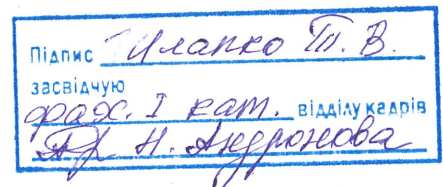 Підпис Шлапко Т. В.
засвідчую
фахс. I кат. відділу кадрів
Н. Андронова